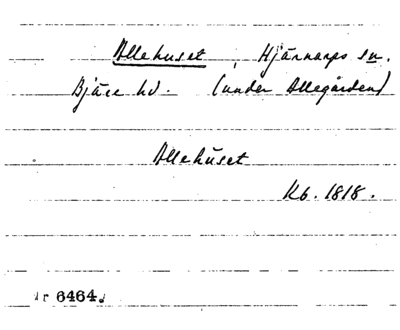 Allehuset, Hjärnarps sn.
Bjäre hd. (under Allegården)
Allehuset
Kb. 1818.
r 6464.